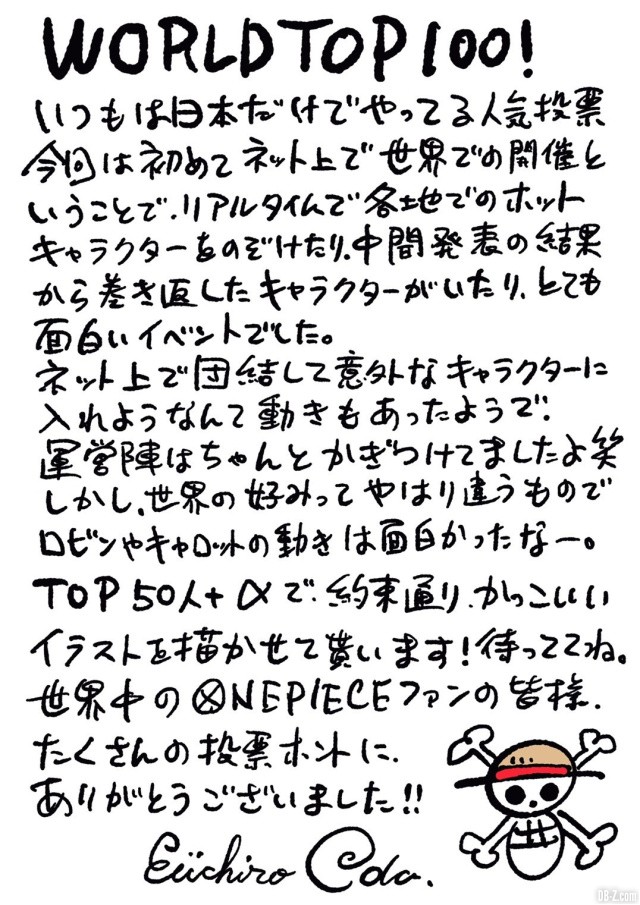 WORLD TOP 100!
いつもは日本だけでやってる人気投票
今回は初めてネット上で世界での開催と
いうことで、リアルタイムで各地でのホット
キャラクターをのぞけたり、中間発表の結果
から巻き返したキャラクターがいたり、とても
面白いイベントでした。
ネット上で団結して意外なキャラクターに
入れようなんて動きもあったようで、
運営陣はちゃんとかぎつけてましたよ笑
しかし、世界の好みってやはり違うもので
ロビンやキャロットの動きは面白かったなー。
TOP 50人+αで、約束通り、かっこいい
イラストを描かせて貰います!待っててね。
世界中のONEPIECEファンの皆様、
たくさんの投票ホントに、
ありがとうございました!!
Eiichiro Oda.
DB-Z.com